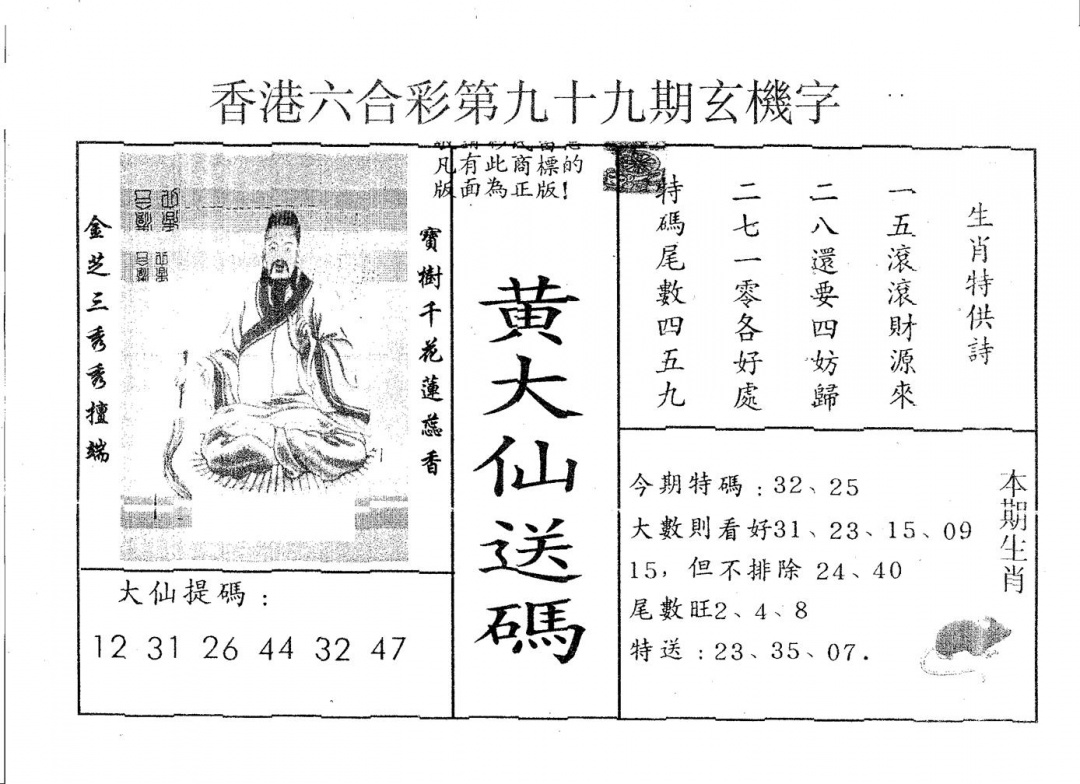 香港六合彩第九十九期玄機字
金芝三秀秀擅端
寶樹千花蓮蕊香
凡有此商標的
版面為正版！
黃大仙送碼
生肖特供詩
一五滾滾財源來
二八還要四妨歸
二七一零各好處
特碼尾數四五九
大仙提碼：
12 31 26 44 32 47
今期特碼：32、25
大數則看好31、23、15、09
15，但不排除 24、40
尾數旺2、4、8
特送：23、35、07．
本期生肖